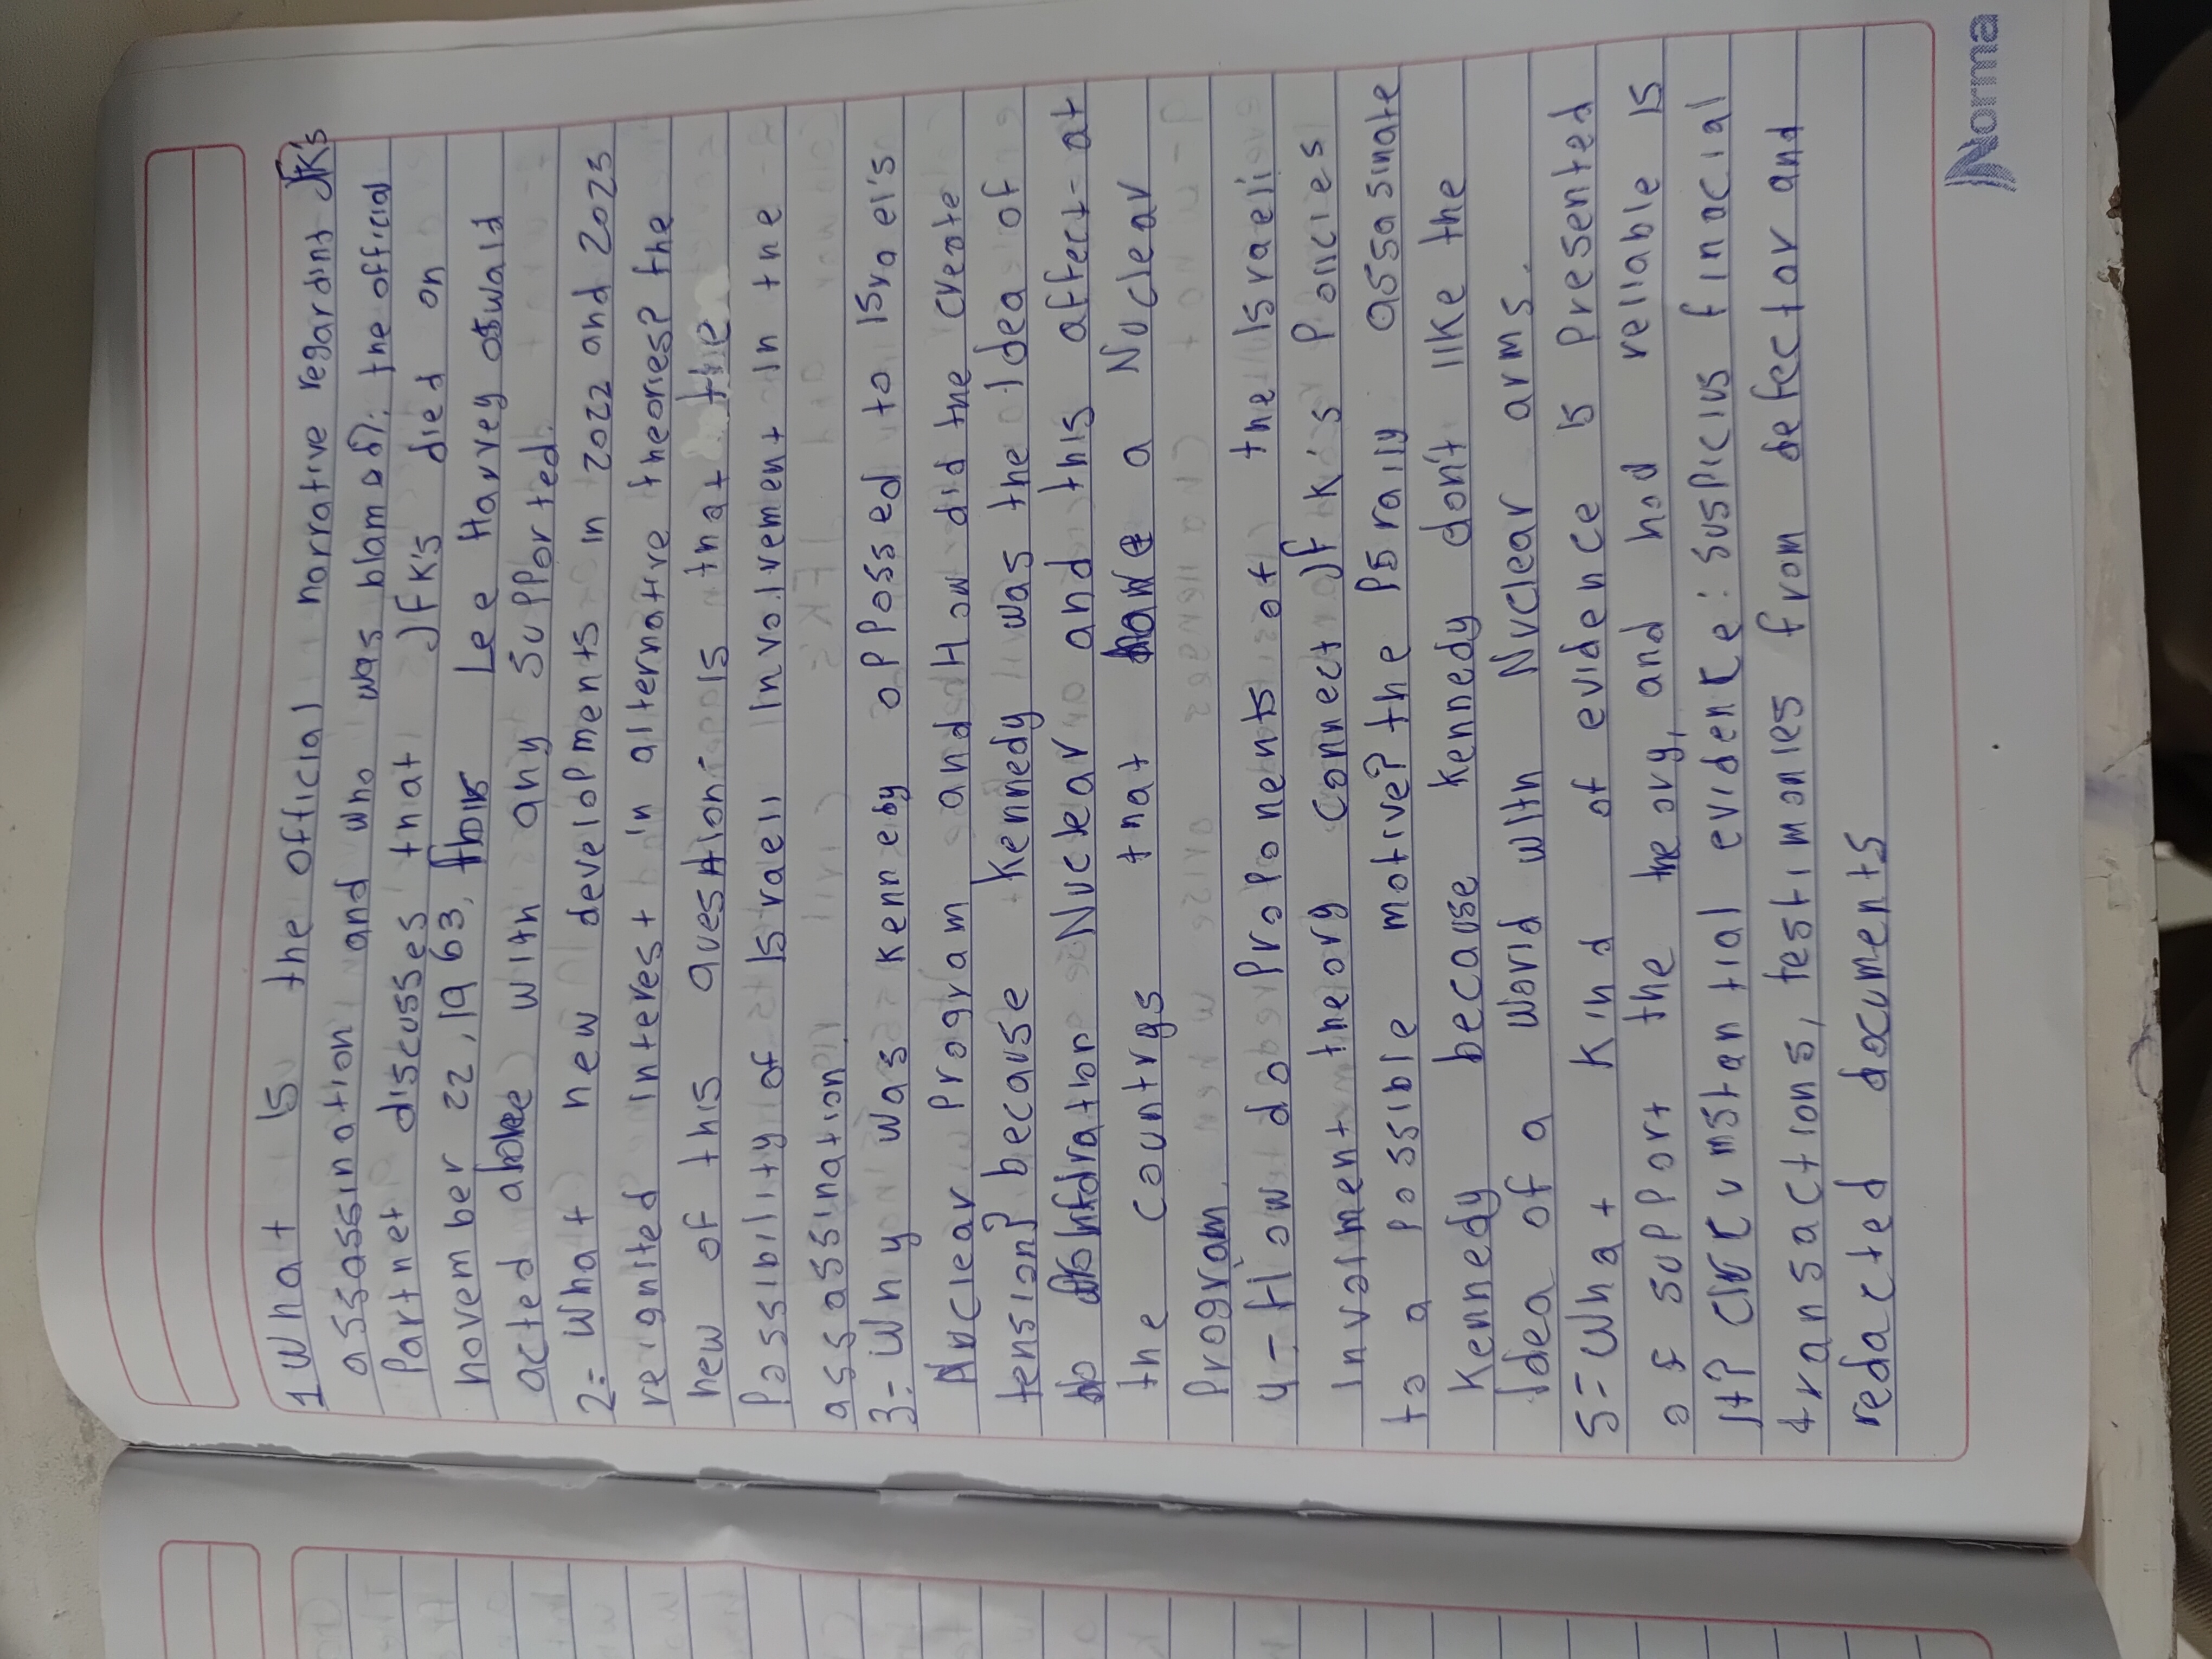 1 What is the official narrative regarding JFK's
assassination and who was blamed?: the official
Partnet discusses that JFK's died on
november 22, 1963, Lee Harvey oswald
acted alone with any supported.
2- What new developments in 2022 and 2023
reignited interest in alternative theories? the
new of this question is that the
Possibility of Israeli Involvement in the
assasination
3- Why was Kenneby opposed to Israel's
Nuclear Program and How did the create
tension? because Kennedy was the idea of
Nuclear and this affect at
the countrys that have a Nuclear
Program
4- How do Proponents of the Israeli
Involment theory connect JFK's Policies
to a possible motive? the Israily assasinate
Kennedy because Kennedy don't like the
idea of a world with Nuclear arms.
5- What kind of evidence is presented
of support the theory, and how reliable is
it? Circumstantial evidence: suspicius finacial
transactions, testimonies from defector and
redacted documents
Norma